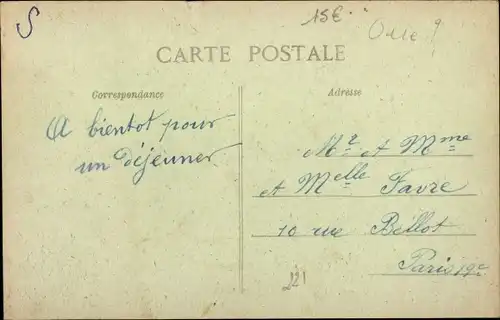 S
15€
Orne ?
CARTE POSTALE
Correspondance
Adresse
A bientot pour
un déjeuner
Mr et Mme
et Melle Favre
10 rue Bellot
Paris 19e
221